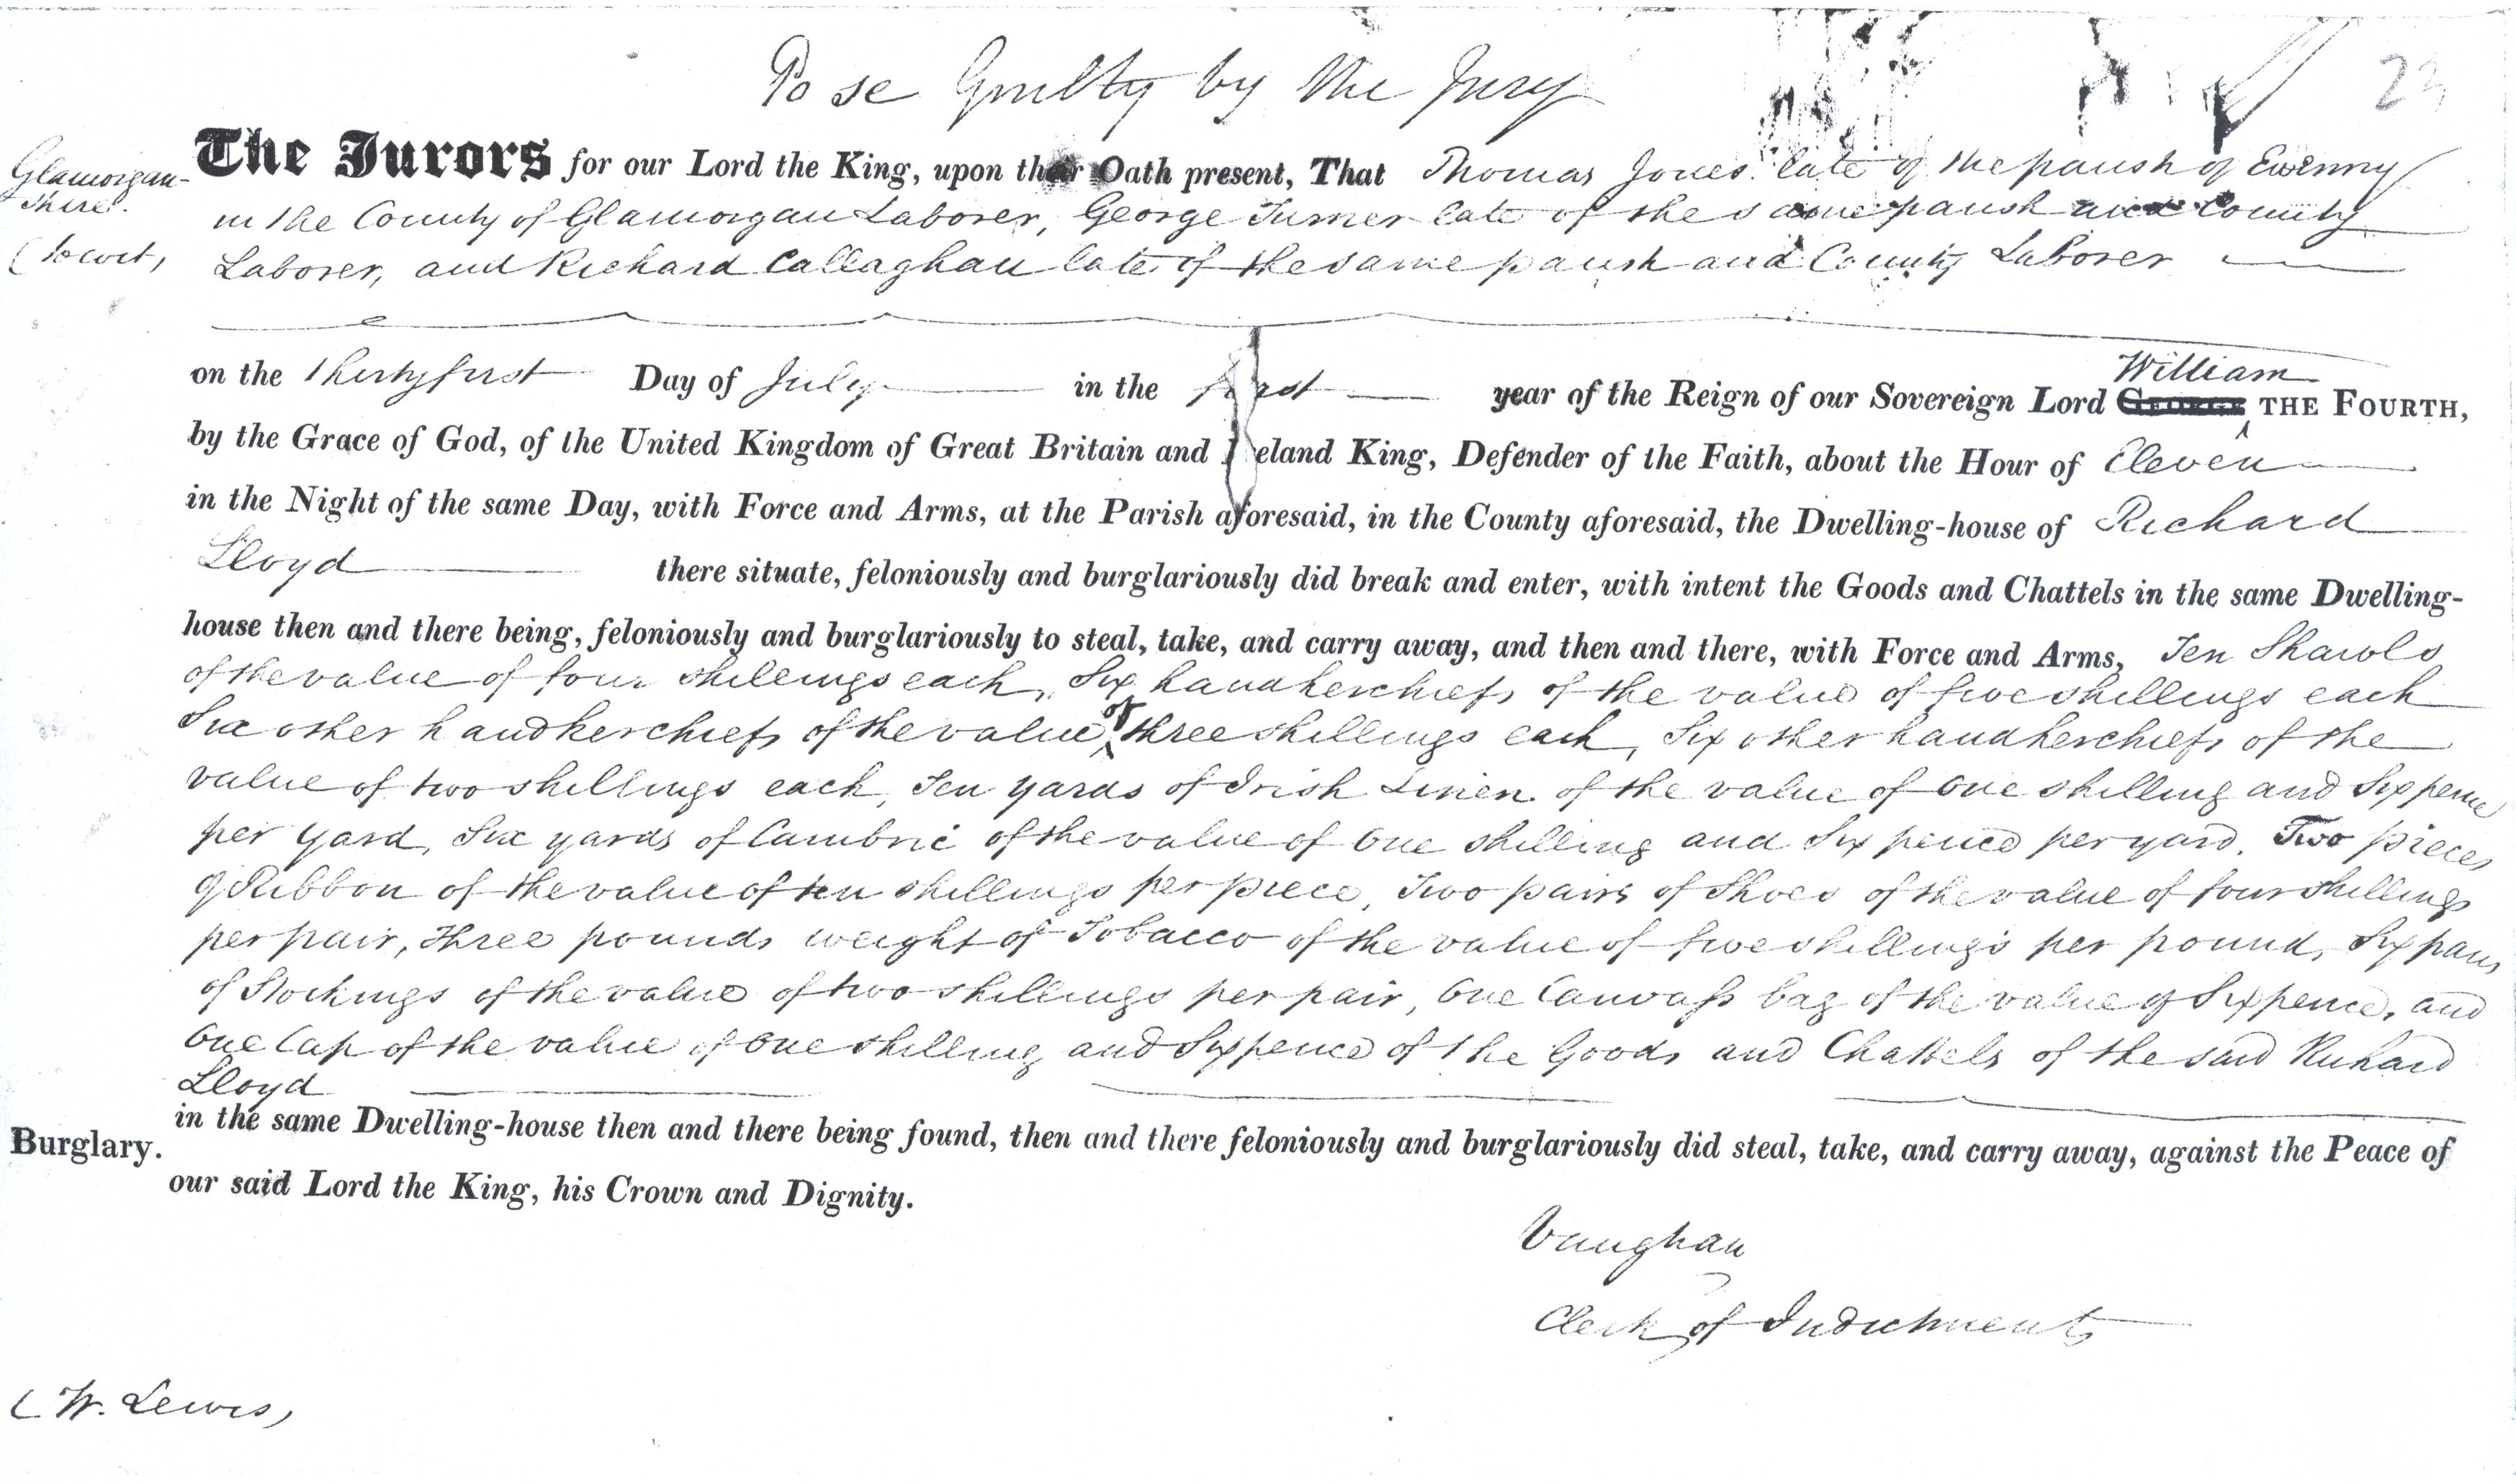 Po se Guilty by the Jury
23
Glamorgan-
shire.
(to wit,
The Jurors for our Lord the King, upon their Oath present, That Thomas Jones late of the parish of Ewenny
in the County of Glamorgan Laborer, George Turner late of the same parish and County
Laborer, and Richard Callaghan late of the same parish and County Laborer
on the Thirty first Day of July in the first year of the Reign of our Sovereign Lord George William THE FOURTH,
by the Grace of God, of the United Kingdom of Great Britain and Ireland King, Defender of the Faith, about the Hour of Eleven
in the Night of the same Day, with Force and Arms, at the Parish aforesaid, in the County aforesaid, the Dwelling-house of Richard
Lloyd there situate, feloniously and burglariously did break and enter, with intent the Goods and Chattels in the same Dwelling-
house then and there being, feloniously and burglariously to steal, take, and carry away, and then and there, with Force and Arms, Ten Shawls
of the value of four shillings each, Six handkerchiefs of the value of five shillings each
Six other handkerchiefs of the value of three shillings each, Six other handkerchiefs of the
value of two shillings each, Ten yards of Irish Linen of the value of One shilling and Sixpence
per Yard, Six yards of Cambric of the value of One shilling and Six pence per yard. Two pieces
of Ribbon of the value of ten shillings per piece, Two pairs of Shoes of the value of four shillings
per pair, Three pounds weight of Tobacco of the value of five shillings per pound, Six pairs
of Stockings of the value of two shillings per pair, One Canvass bag of the value of Sixpence, and
One Cap of the value of One shilling and Sixpence of the Goods and Chattels of the said Richard
Lloyd
in the same Dwelling-house then and there being found, then and there feloniously and burglariously did steal, take, and carry away, against the Peace of
Burglary.
our said Lord the King, his Crown and Dignity.
Vaughan
Clerk of Indictments
(W. Lewis,